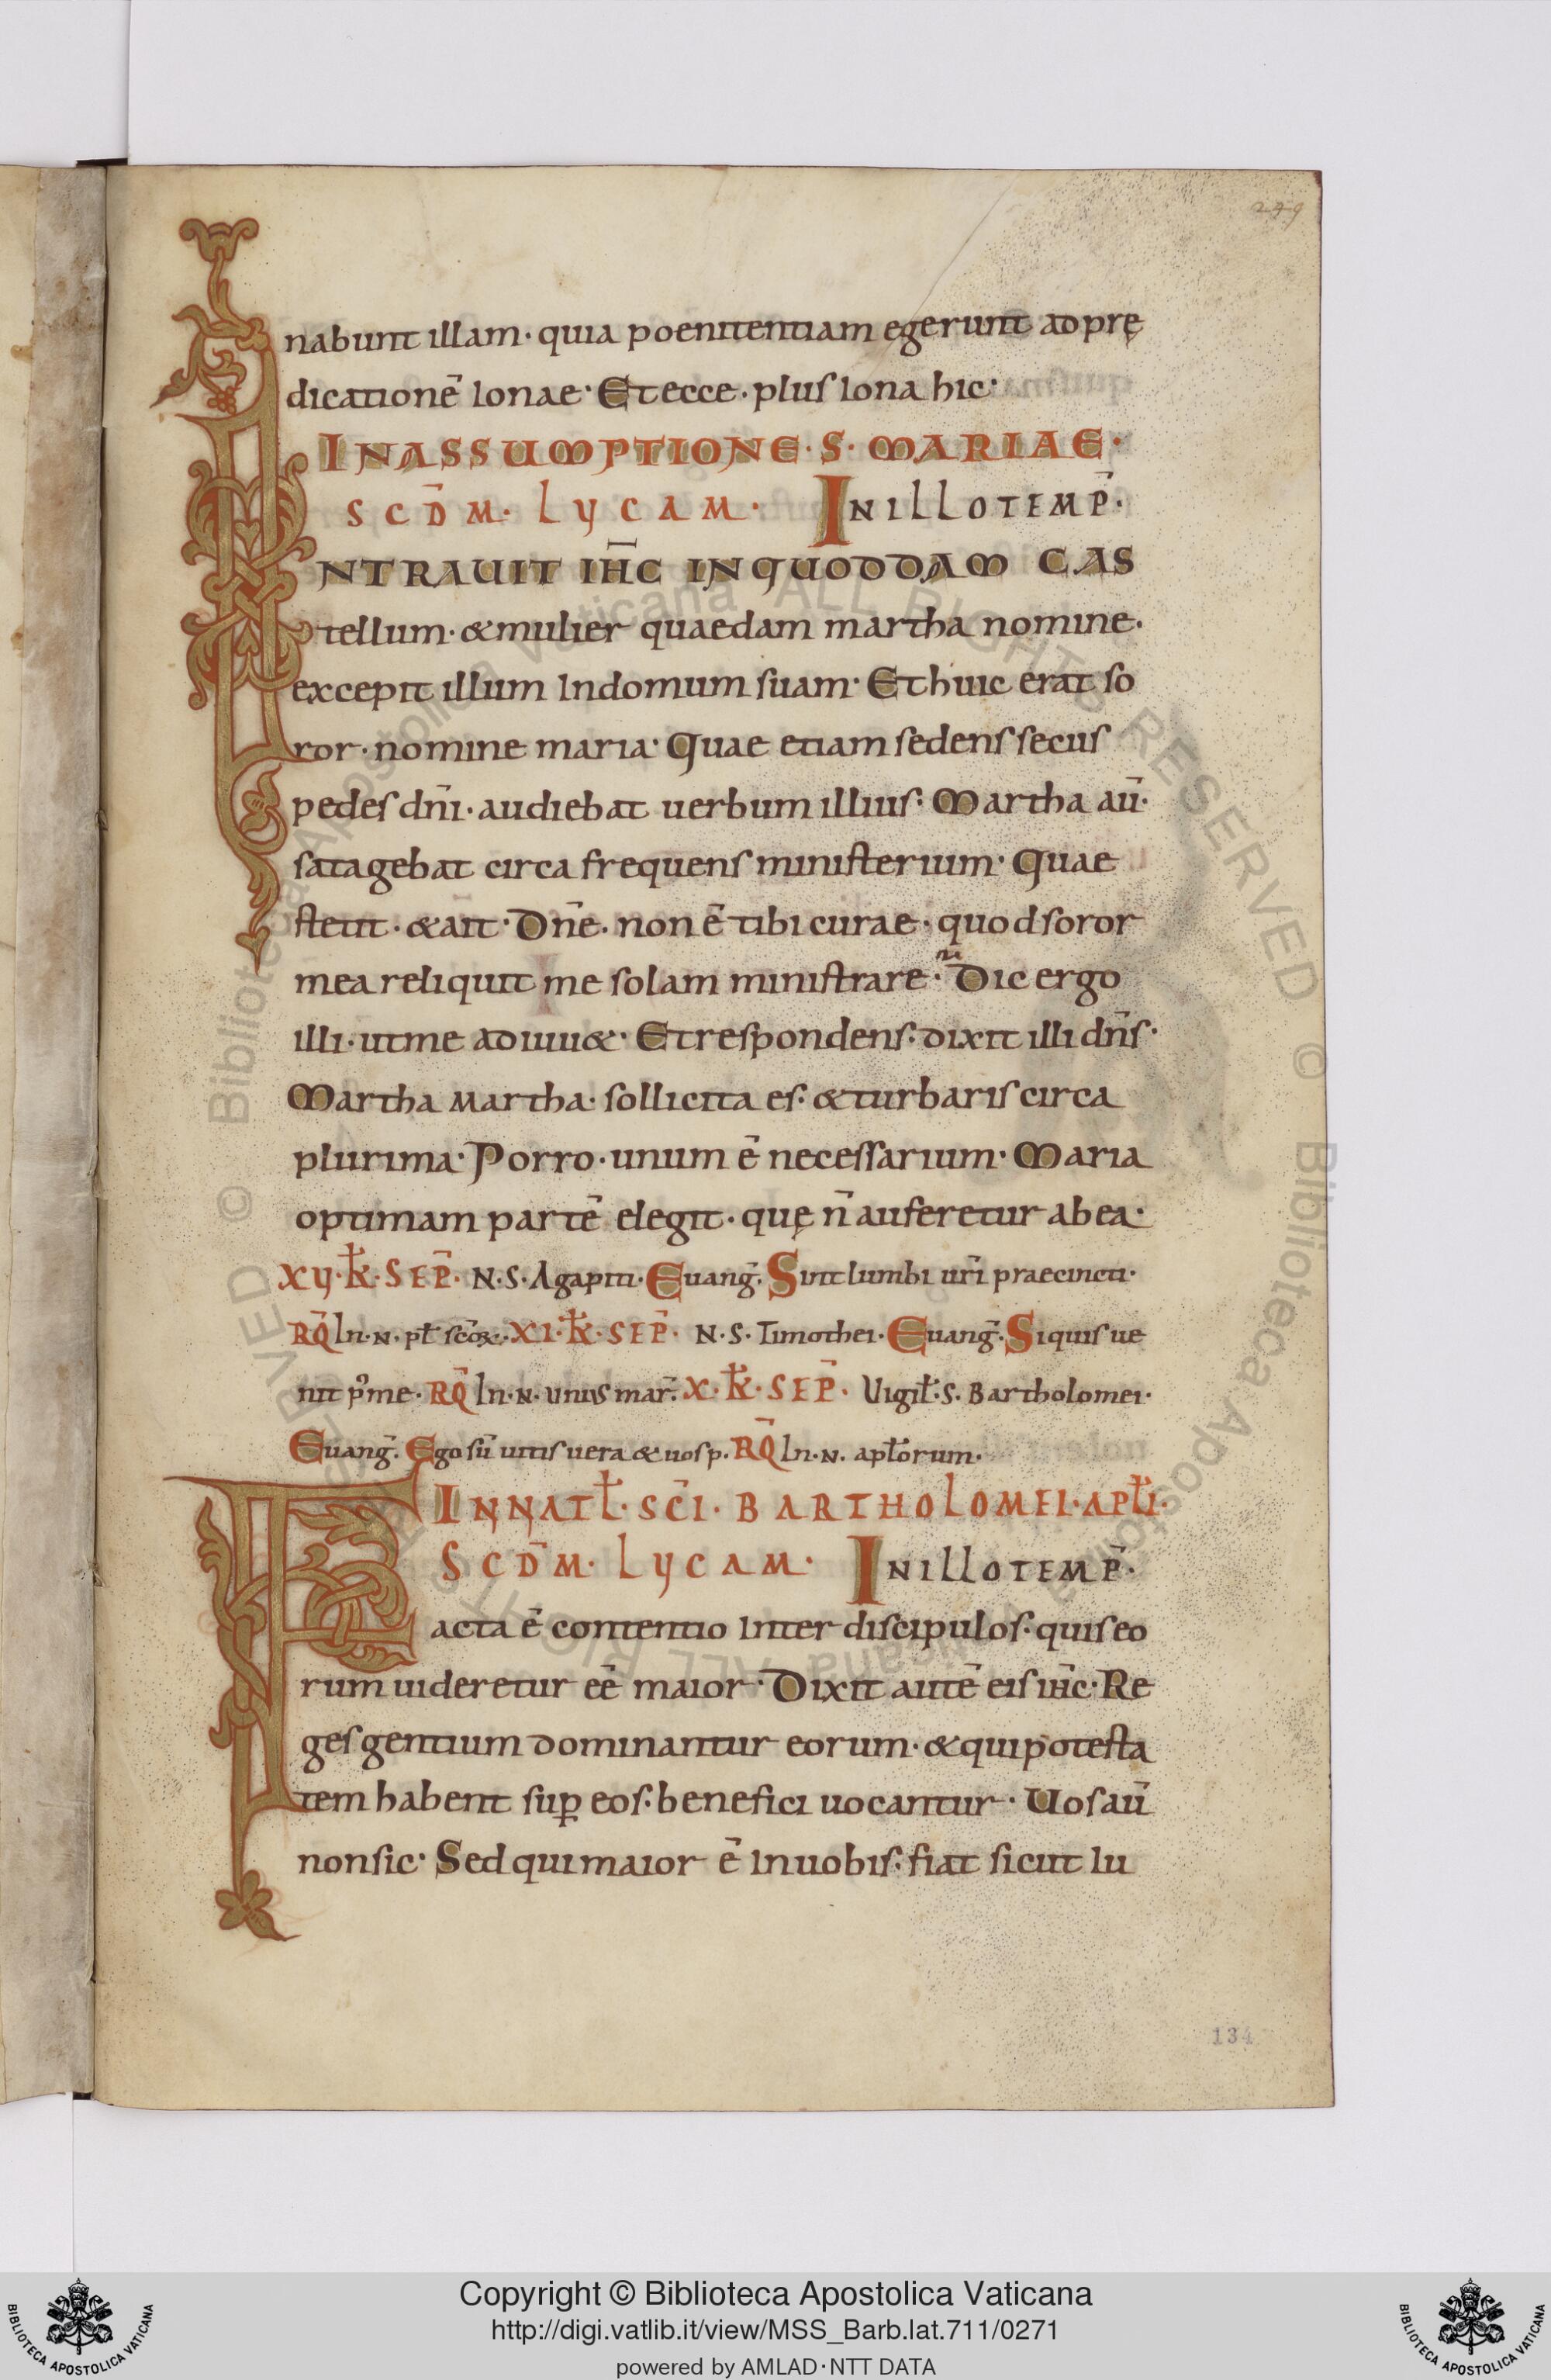 249
nabunt illam· quia poenitentiam egerunt ad prę
dicationē Ionae· Et ecce· plus Iona hic·
IN ASSUMPTIONE· S· MARIAE·
SCD̄M· LVCAM· IN ILLO TEMP̄·
INTRAUIT IH̄C IN QUODDAM CAS
tellum· & mulier quaedam martha nomine·
excepit illum In domum suam· Et huic erat so
ror· nomine maria· Quae etiam sedens secus
pedes dn̄i· audiebat uerbum illius· Martha aū·
satagebat circa frequens ministerium· Quae
stetit· & ait· Dn̄e· non ē tibi curae· quod soror
mea reliquit me solam ministrare· Dic ergo
illi· ut me adiuu&· Et respondens· dixit illi dn̄s·
Martha Martha· sollicita es· & turbaris circa
plurima· Porro· unum ē necessarium· Maria
optimam partē elegit· quę n̄ auferetur ab ea·
XV· K̄· SEP̄· N· S· Agapiti· Euang̅· Sint lumbi uri̅ praecincti·
RQ̄ In· N· pł scōꝝ· XI· K̄· SEP̄· N· S· Timothei· Euang̅· Si quis ue
nit p̊ me· RQ̄ In· N· unius mar̄· X· K̄· SEP̄· Uigił· S· Bartholomei·
Euang̅· Ego sū uitis uera & uos p· RQ̄ In· N· apłorum·
IN NATł· SC̄I· BARTHOLOMEI· APłI·
SCD̄M· LVCAM· IN ILLO TEMP̄·
Facta ē contentio Inter discipulos· quis eo
rum uideretur eē maior· Dixit autē eis ih̄c· Re
ges gentium dominantur eorum· & qui potesta
tem habent suꝑ eos· benefici uocantur· Uos aū
non sic· Sed qui maior ē In uobis· fiat sicut Iu
134
© Biblioteca Apostolica Vaticana ALL RIGHTS RESERVED © Biblioteca Apostolica Vaticana ALL RIGHTS RESERVED
Copyright © Biblioteca Apostolica Vaticana
http://digi.vatlib.it/view/MSS_Barb.lat.711/0271
powered by AMLAD·NTT DATA
BIBLIOTECA APOSTOLICA VATICANA
BIBLIOTECA APOSTOLICA VATICANA